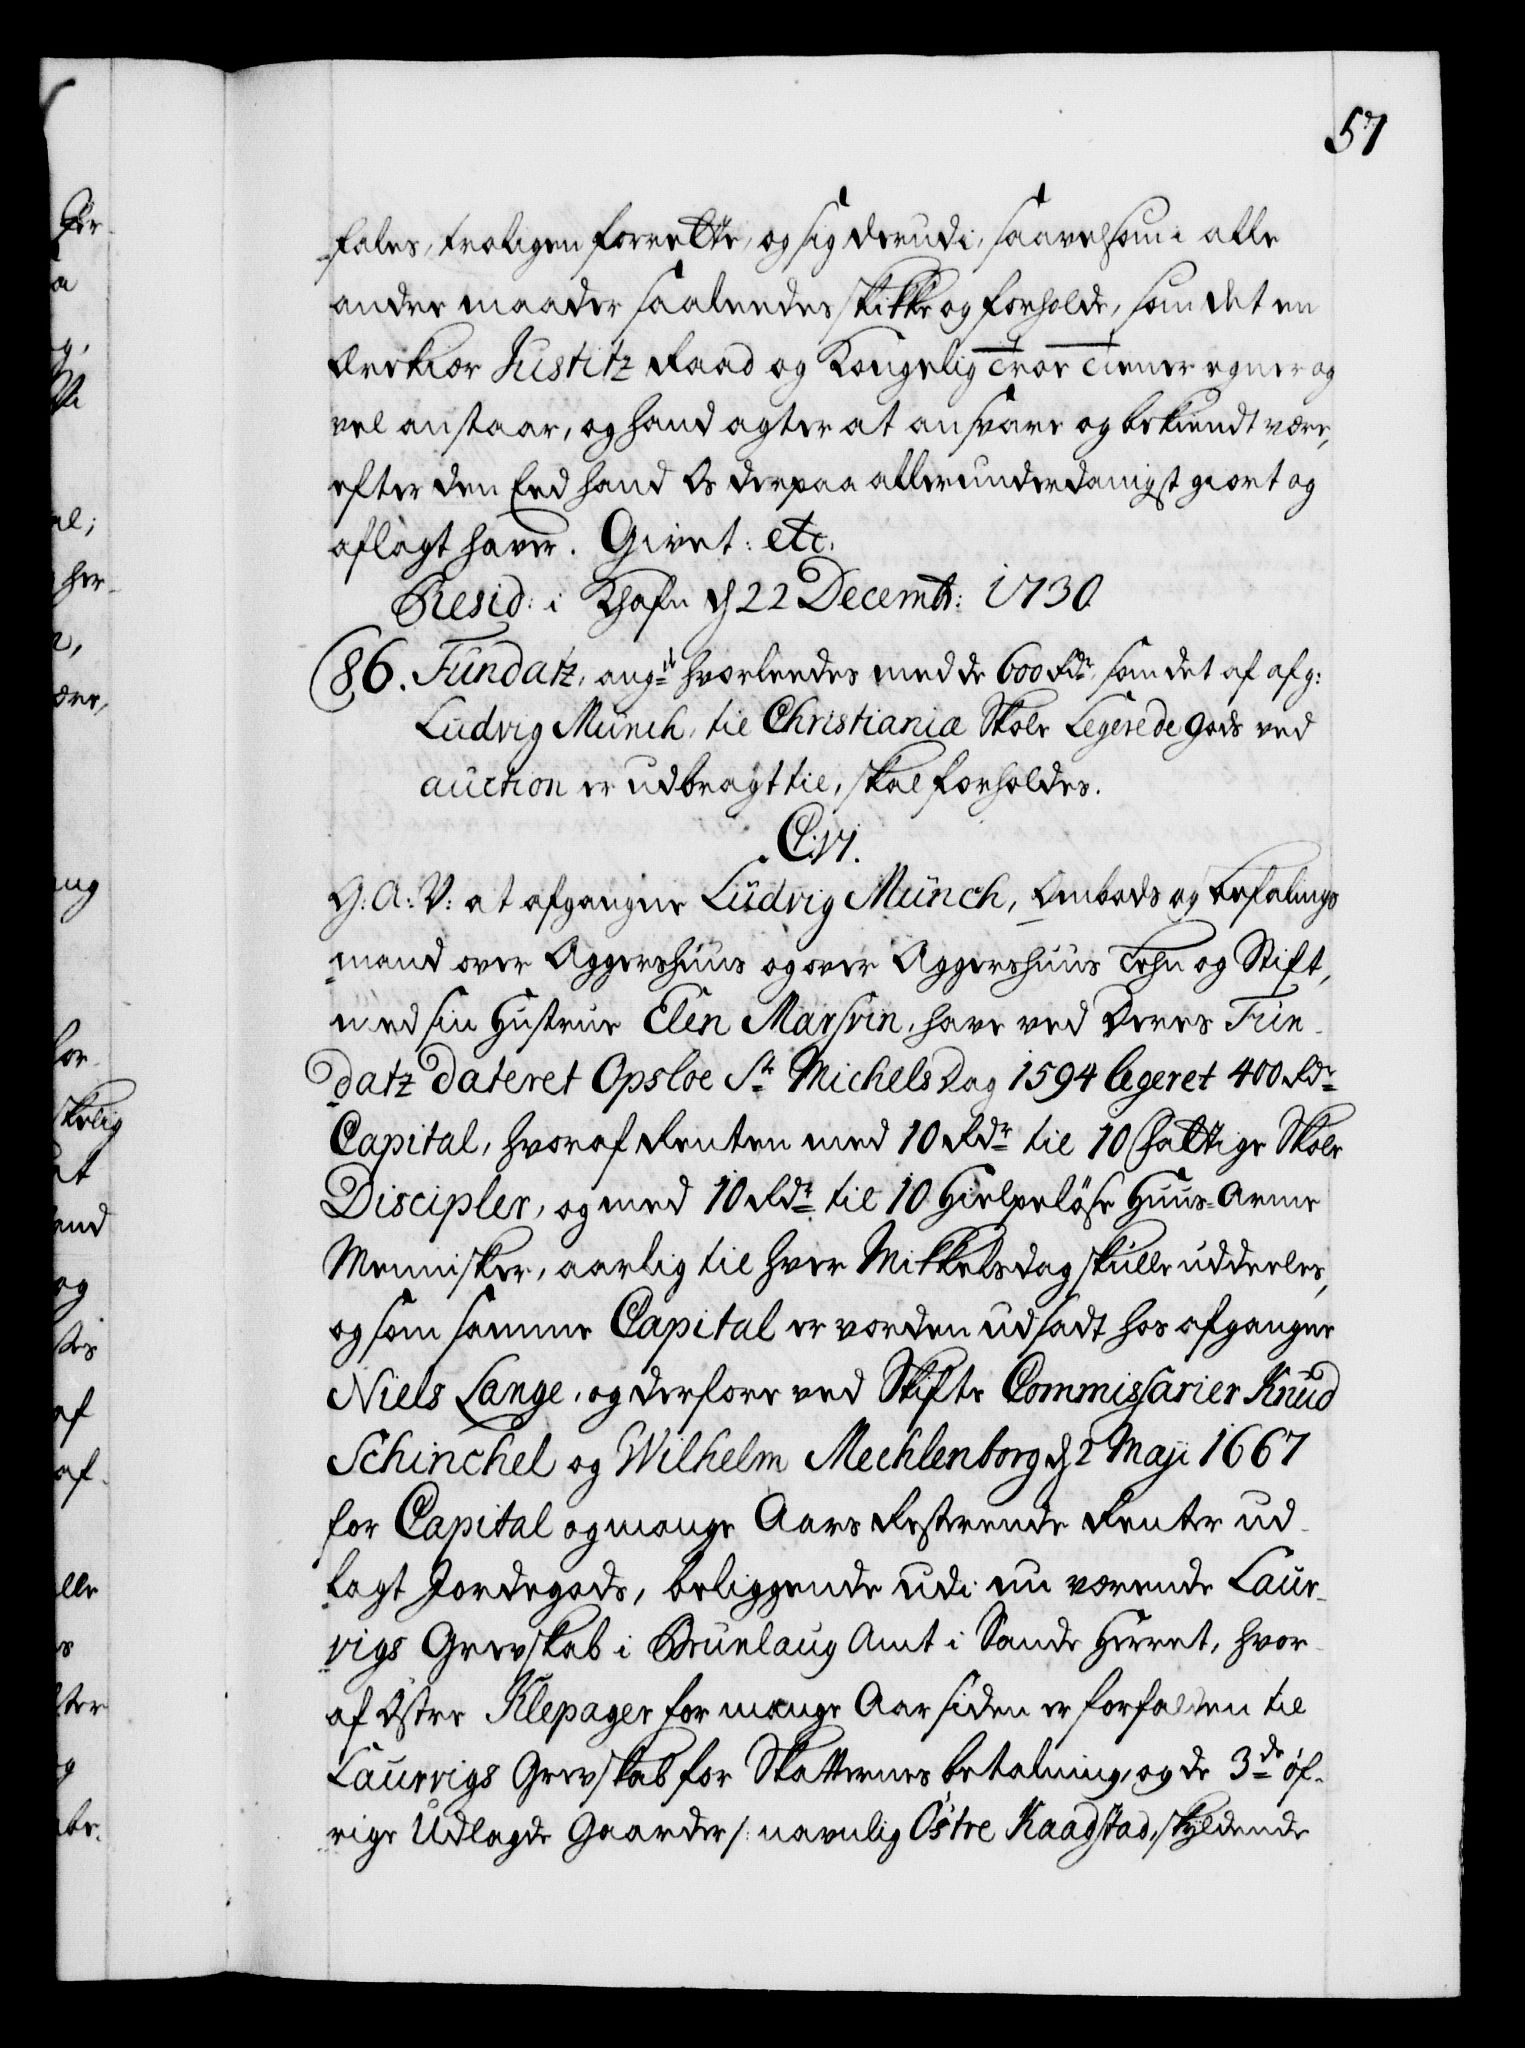 57
fales, troligen forrette, og sig derudi, saavelsom i alle
andre maader saaleedes skikke og forholde, som det en
ærekiær Justitz Raad og Kongelig Troe Tiener egner og
vel anstaar, og hand agter at ansvare og bekiendt være,
efter den Eed hand Os derpaa allerunderdanigst giort og
aflagt haver. Givet: etc.
Resid: i Khafn d 22 Decembr: 1730
86. Fundatz, angd hvorleedes med de 600 Rdr, som det af afg:
Ludvig Munch, til Christianiæ Skole Legerede gods ved
auction er udbragt til, skal forholdes.
C: VI.
G: A: V: at afgangne Ludvig Munch, Embeds og befalings
mand over Aggershuus og over Aggershuus Lehn og Stift,
med sin Hustrue Elen Marsvin, have ved Deres Fun-
datz dateret Opsloe St Michels Dag 1594 legeret 400 Rdr
Capital, hvoraf Renten med 10 Rdr til 10 fattige Skole
Discipler, og med 10 Rdr til 10 Hielpeløse Huus-Arme
Mennisker, aarlig til hver Mikkelsdag skulle uddeeles,
og som samme Capital er vorden udsadt hos afgangne
Niels Lange, og derfore ved Skifte Commissarier Knud
Schinchel og Wilhelm Mechlenborg d 2 Maji 1667
for Capital og mange Aars Resterende Renter ud-
lagt Jordegods, beliggende udi nu værende Laur-
vigs Grevskab i Brunlaug Amt i Sande Herret, hvor-
af Østre Klepager for mange Aar siden er forfalden til
Laurvigs Grevskab for Skatternes betalning, og de 3de øf-
rige Udlagde Gaarder /: navnlig Østre Kaadstad, skyldende